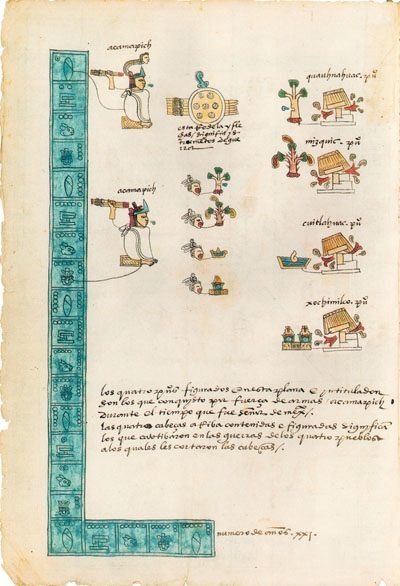 acamapich
quauhnahuac. puº
esta rodela y fle
chas / significa yns
trumentos de gue
rra
mizquic. puº
acamapich
cuitlahuac. puº
xochimilco. puº
los quatro puºs figurados en esta plana e yntitulados
son los que conquisto por fuerça de armas acamapich
durante el tiempo que fue señor de mexº/.
las quatro cabeças arriba contenidas e figuradas significa
los que cautibaron en las guerras de los quatro pueblos
a los quales les cortaron las cabeças/.
numero de años. xxi.